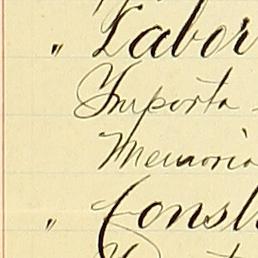 " Labor
Importa
Memoria
" Const